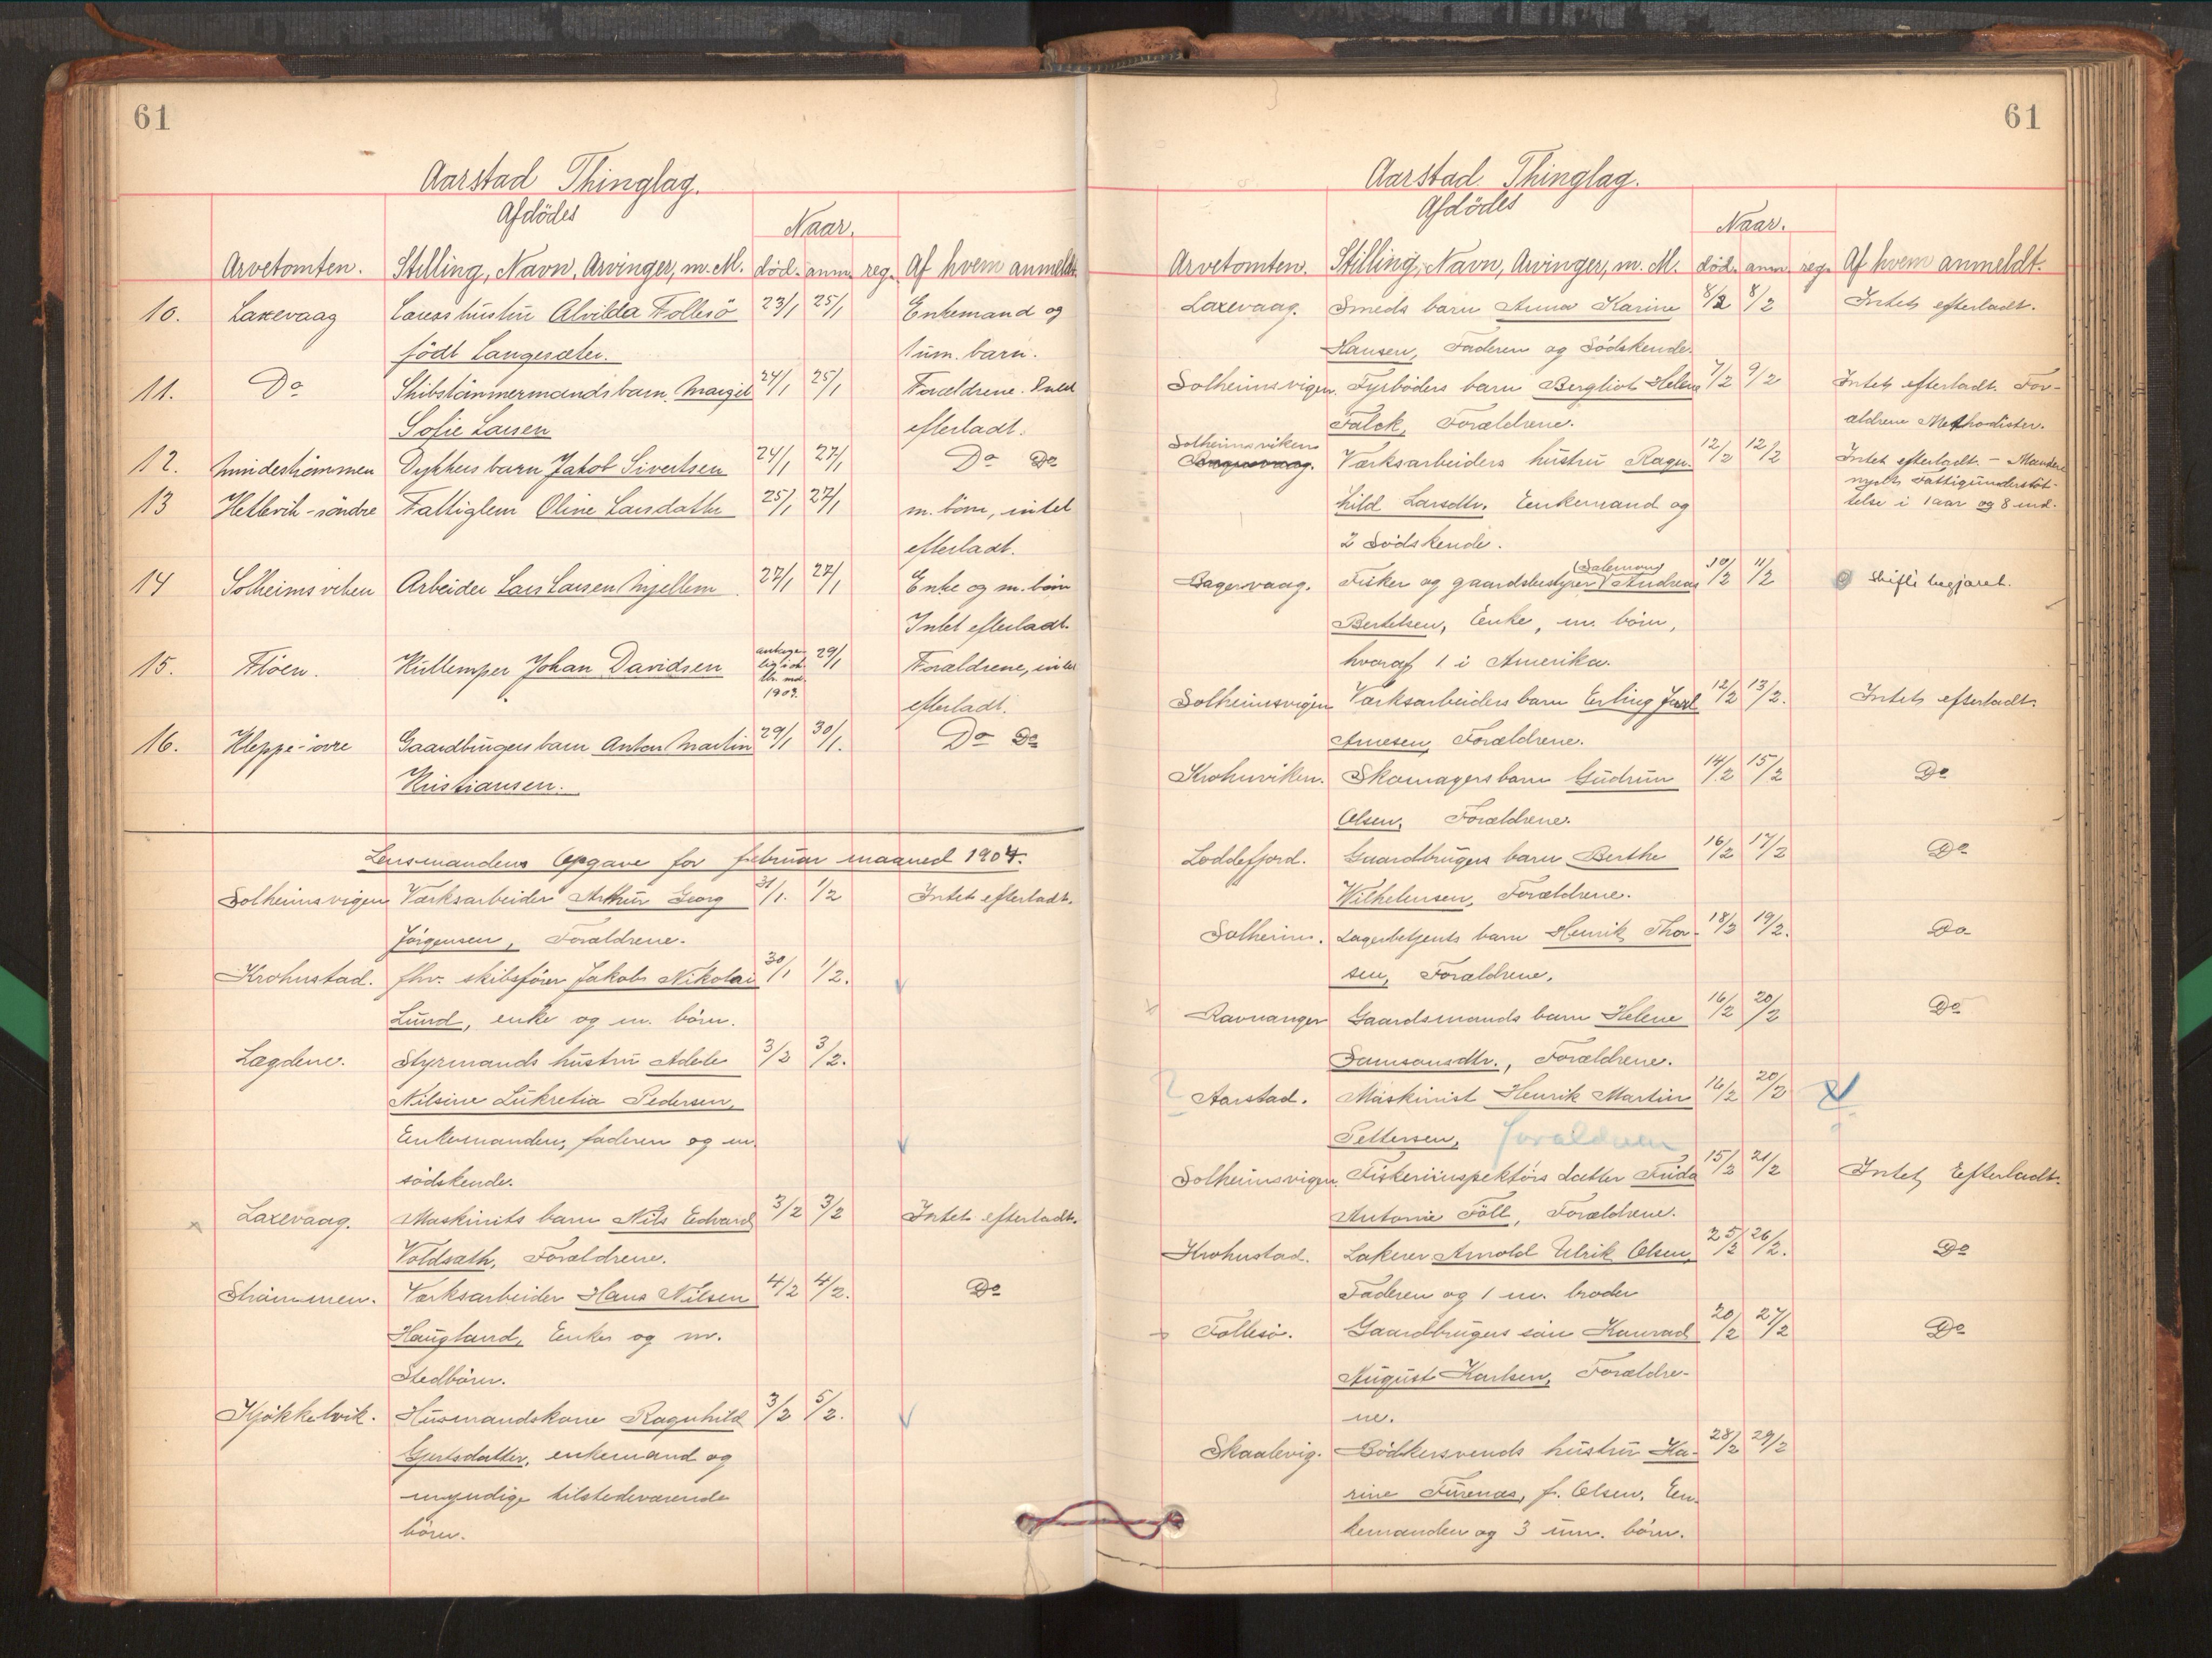 61
Aarstad Thinglag.
Afdödes
Naar.
Arvetomten. Stilling, Navn, Arvinger, m. M. död. anm. reg. Af hvem anmeldt.
10. Laxevaag Lauss hustru Alvilda Follesö 23/1 25/1 Enkemand og
födt Langesæter. 1 um. barn.
11. Do Skibstömmermands barn Margit 24/1 25/1 Forældrene. Intet
Sofie Larsen efterladt.
12. Mindeströmmen Dykkers barn Jakob Sivertsen 24/1 27/1 Do Do
13 Hetlevik-söndre Fattiglem Oline Larsdatter 25/1 27/1 m. börn, intet
efterladt.
14 Solheimsviken Arbeider Lars Larsen Mjellem 27/1 27/1 Enke og m. börn
Intet efterladt.
15. Flöen. Kullemper Johan Davidsen antage- 29/1 Forældrene, intet
lig i
md.
1903. efterladt.
16. Kleppe-övre Gaardbrugers barn Anton Martin 29/1 30/1. Do Do
Kristiansen.
Lensmandens Opgave for februar maaned 1904.
Solheimsvigen Værksarbeider Arthur Georg 31/1. 1/2 Intet efterladt.
Jörgensen, Forældrene.
Krohnstad. fhv. skibsförer Jakob Nikolai 30/1 1/2.
Lund, enke og m. börn.
Lægdene. Styrmands hustru Adele 3/2 3/2.
Nilsine Lukretia Pedersen,
Enkemanden, faderen og m.
södskende.
Laxevaag. Maskinists barn Nils Edvard 3/2 3/2 Intet efterladt.
Voldsath, Forældrene.
Strömmen. Værksarbeider Hans Nilsen 4/2 4/2. Do
Haugland, Enke og m.
Stedbörn.
Kjökkelvik. Husmandskone Ragnhild 3/2 5/2.
Gjertsdatter, enkemand og
myndige tilstedeværende
börn.
61
Aarstad Thinglag.
Afdödes
Naar.
Arvetomten. Stilling, Navn, Arvinger, m. M. död. anm. reg. Af hvem anmeldt.
Laxevaag. Smeds barn Anna Karine 8/2 8/2 Intet efterladt.
Hansen, Faderen og Södskende.
Solheimsvigen. Fyrböders barn Bergliot Helene 7/2 9/2 Intet efterladt. For-
Falck, Forældrene. ældrene Methodister.
Solheimsviken
Værksarbeiders hustru Ragn- 12/2 12/2 Intet efterladt. - Manden
nydt Fattigunderstöt-
hild Larsdtr. Enkemand og telse i 1 aar og 8 md.
2 Södskende.
(Salemon)
Bagersvaag. Fisker og gaardsbestyrer Andreas 10/2 11/2 Skifte begjæret.
Bertelsen, Enke, m. börn,
hvoraf 1 i Amerika.
Solheimsvigen Værksarbeiders barn Erling Jarl 12/2 13/2. Intet efterladt.
Arnesen, Forældrene.
Krohnviken. Skomagers barn Gudrun 14/2 15/2 Do
Olsen, Forældrene.
Loddefjord. Gaardbrugers barn Berthe 16/2 17/2 Do
Wilhelmsen, Forældrene.
Solheim. Lagerbetjents barn Henrik Thor- 18/2 19/2. Do
sen, Forældrene.
Ravnanger Gaardsmands barn Helene 16/2 20/2 Do
Samsonsdtr., Forældrene.
Aarstad. Maskinist Henrik Martin 16/2 20/2
Pettersen, forældrene
Solheimsvigen. Fiskeriinspektörs datter Frida 15/2 21/2 Intet Efterladt.
Antonie Föll, Forældrene.
Krohnstad. Lakerer Arnold Ulrik Olsen, 25/2 26/2. Do
Faderen og 1 m. broder
Follesö. Gaardbrugers sön Konrad 20/2 27/2 Do
August Karlsen, Forældre-
ne.
Skaalevig. Bödkersvends hustru Ka- 28/2 29/2
rine Furenæs, f. Olsen. En-
kemanden og 3 um. börn.